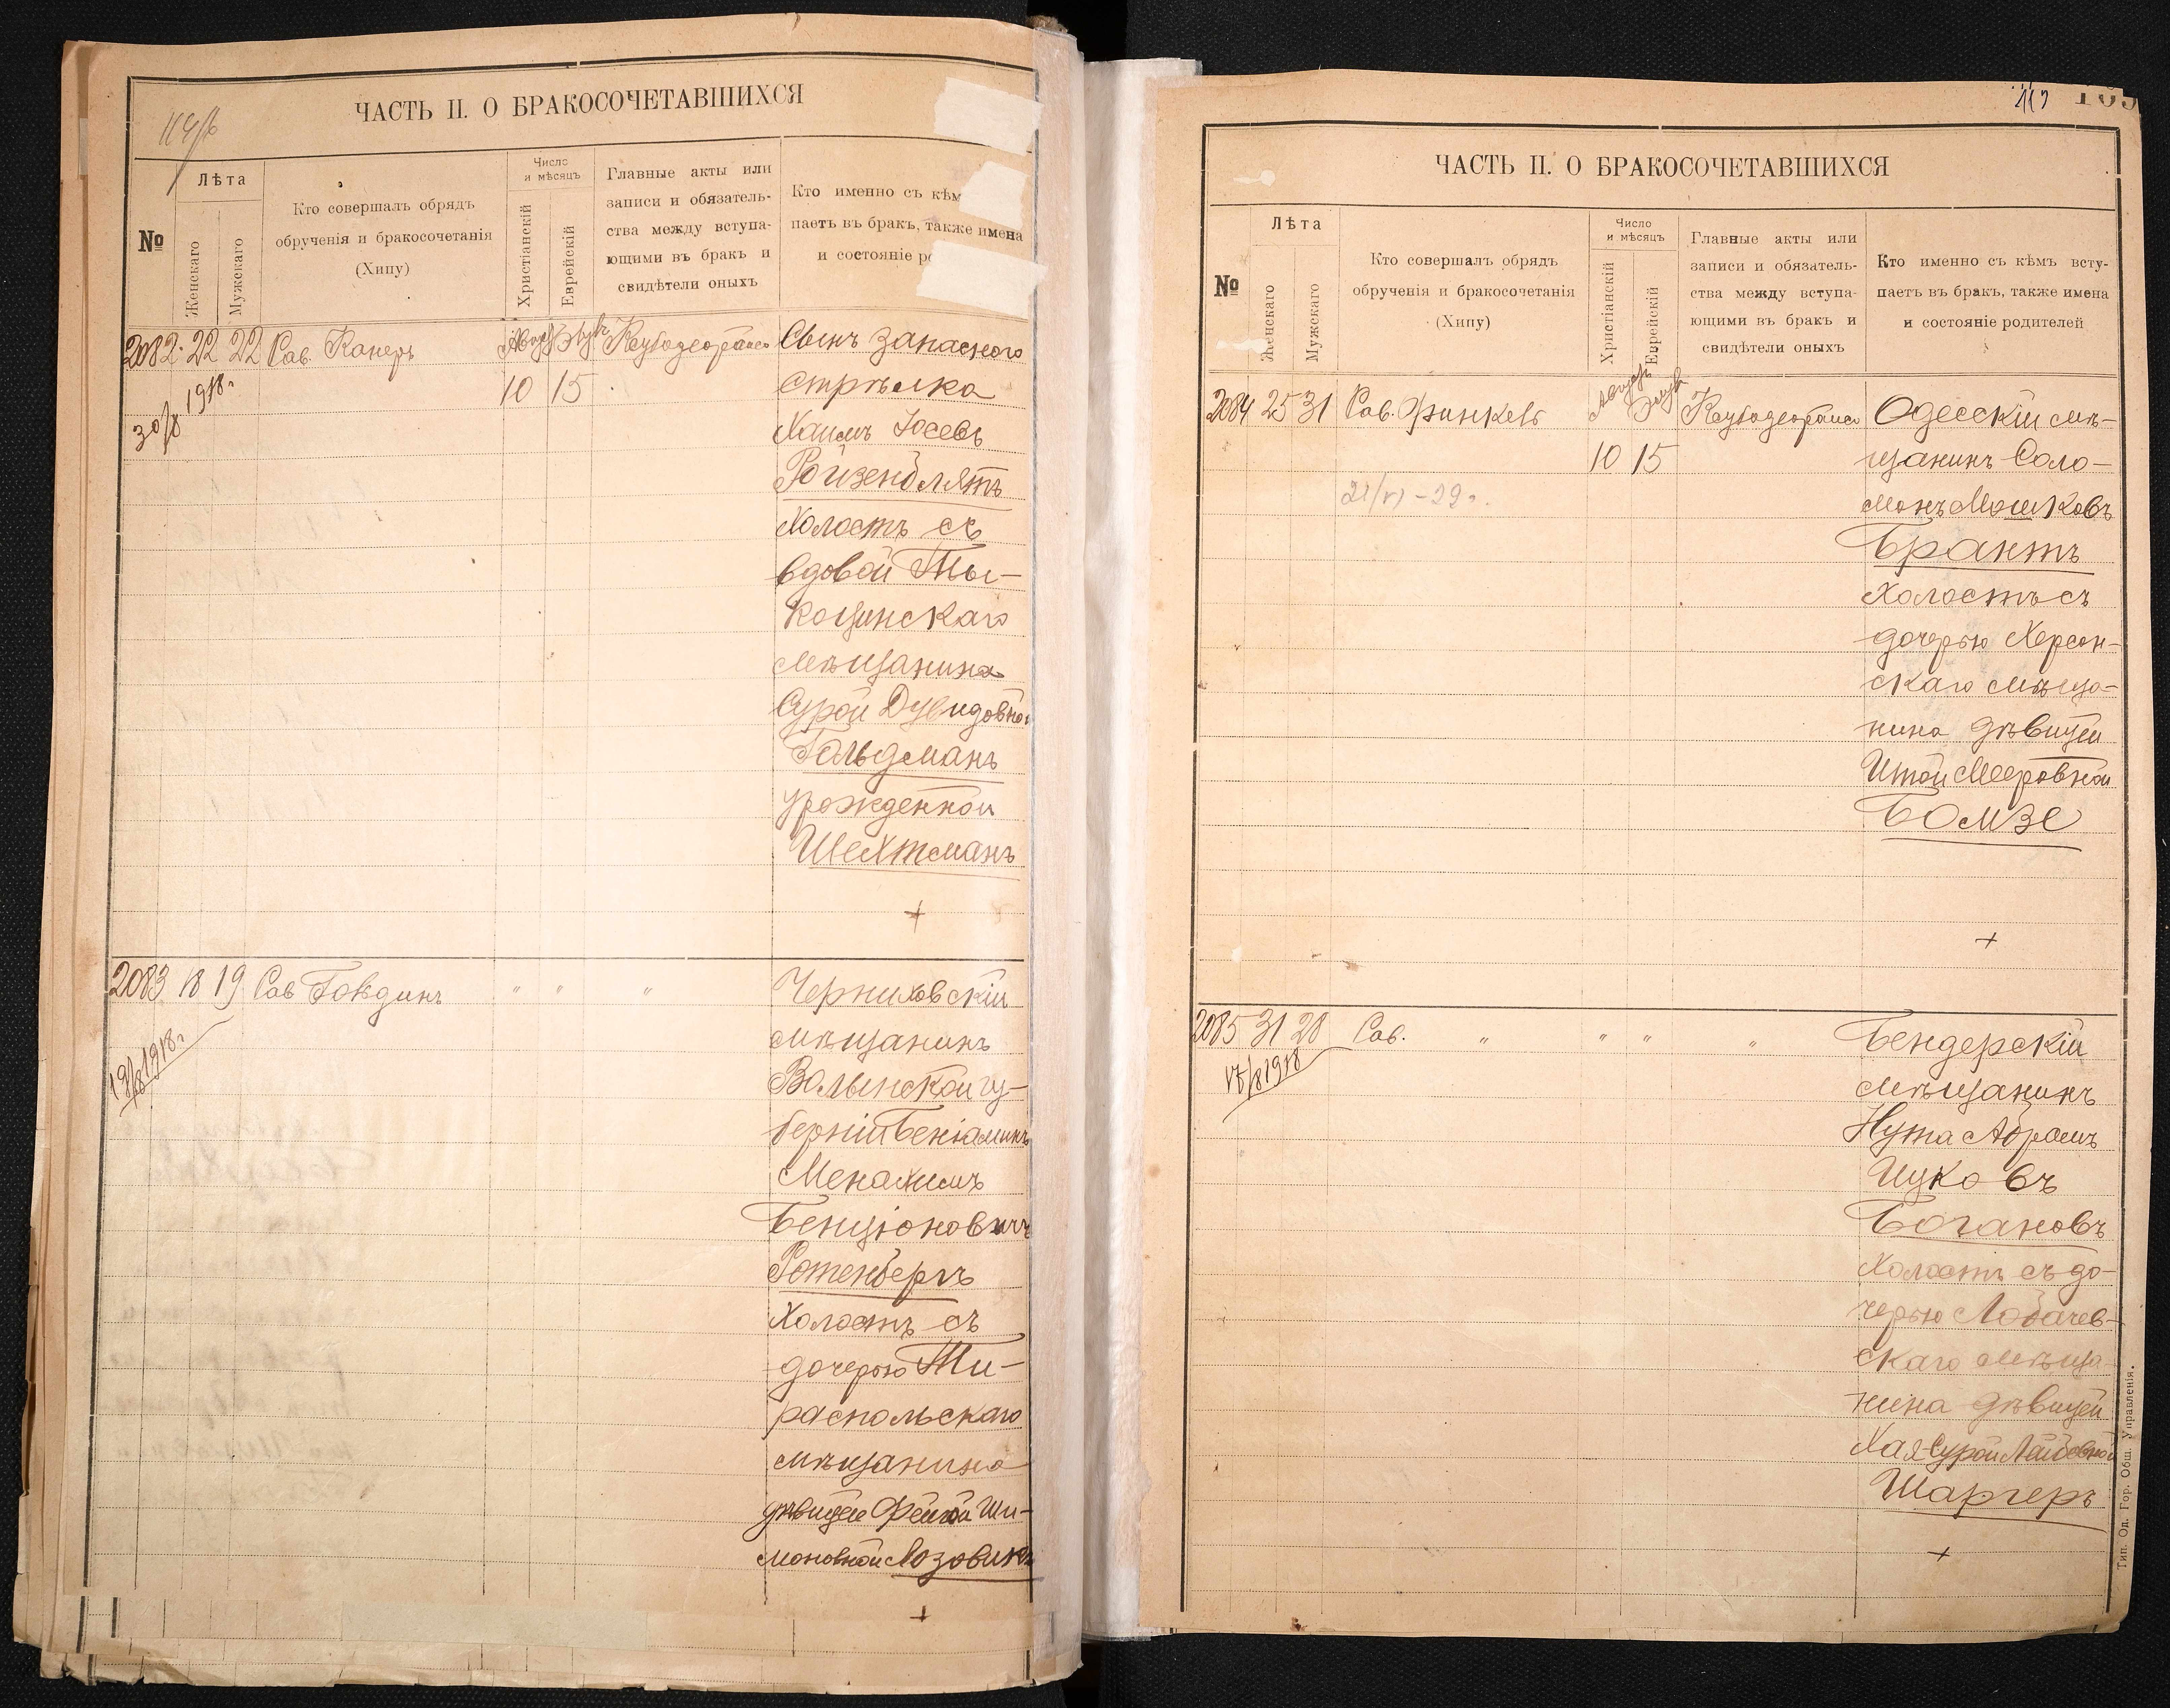 114/б
ЧАСТЬ II. О БРАКОСОЧЕТАВШИХСЯ
№
Лѣта
Женскаго
Мужскаго
Кто совершалъ обрядъ
обрученія и бракосочетанія
(Хипу)
Число
и мѣсяцъ
Христіанскій
Еврейскій
Главные акты или
записи и обязатель-
ства между вступа-
ющими въ бракъ и
свидѣтели оныхъ
Кто именно съ кѣм
паетъ въ бракъ, также имена
и состояніе ро
2082 22 22 Рав. Канеръ
10 15
30/8 1918 г.
Сынъ запасного
стрѣлка
Хаимъ Іосевъ
Ройзенблятъ
Холостъ съ
вдовой Ты-
коцинскаго
мѣщанина
Сурой Дувидовной
Гольдманъ
урожденной
Шехтманъ
+
2083 18 19 Рав. " " "
19/8 1918 г.
Черниховскій
мѣщанинъ
Волынской гу-
берніи Беніаминъ
Менахимъ
Бенціоновичъ
Ротенбергъ
Холостъ съ
дочерью Ти-
распольскаго
мѣщанина
дѣвицею Фейгой Ши-
моновной Лозовикъ
+
119
ЧАСТЬ II. О БРАКОСОЧЕТАВШИХСЯ
№
Лѣта
Женскаго
Мужскаго
Кто совершалъ обрядъ
обрученія и бракосочетанія
(Хипу)
Число
и мѣсяцъ
Христіанскій
Еврейскій
Главные акты или
записи и обязатель-
ства между вступа-
ющими въ бракъ и
свидѣтели оныхъ
Кто именно съ кѣмъ всту-
паетъ въ бракъ, также имена
и состояніе родителей
2084 25 31 Рав. Финкель
10 15
21/VI - 29 г.
Одесскій мѣ-
щанинъ Соло-
монъ Мошковъ
Брантъ
Холостъ съ
дочерью Херсон-
скаго мѣща-
нина дѣвицей
Итой Мееровной
Бомзе
+
2085 31 28 Рав. " " " "
Бендерскій
мѣщанинъ
Нута Абрамъ
Ицковъ
Богановъ
Холостъ съ до-
черью Лобачев-
скаго мѣща-
нина дѣвицей
Хая-Сурой Лейбовной
Шаргеръ
+
Тип. Од. Гор. Общ. Управленія.